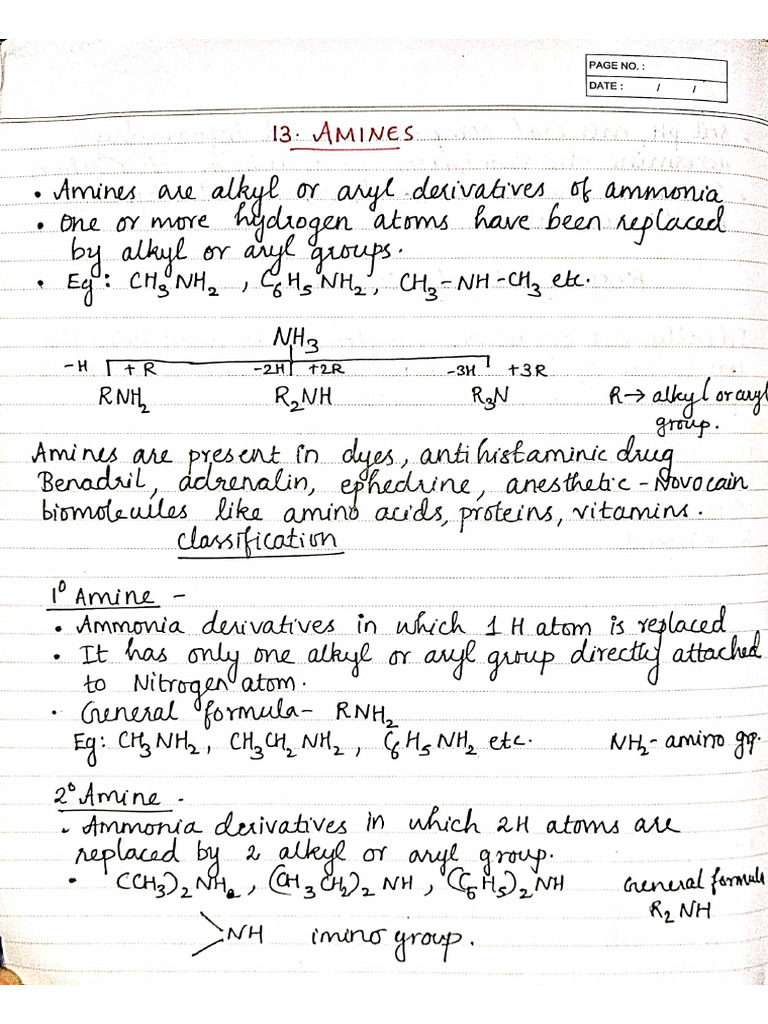 PAGE NO. :
DATE : / /
13. AMINES
• Amines are alkyl or aryl derivatives of ammonia
• One or more hydrogen atoms have been replaced
by alkyl or aryl groups.
• Eg: CH₃NH₂ , C₆H₅NH₂, CH₃-NH-CH₃ etc.
NH₃
-H +R -2H +2R -3H +3R
RNH₂ R₂NH R₃N R→ alkyl or aryl
group.
Amines are present in dyes, antihistaminic drug
Benadril, adrenalin, ephedrine, anesthetic - Novocain
biomolecules like amino acids, proteins, vitamins.
Classification
1° Amine -
• Ammonia derivatives in which 1 H atom is replaced
• It has only one alkyl or aryl group directly attached
to Nitrogen atom.
• General formula - RNH₂
Eg: CH₃NH₂, CH₃CH₂NH₂, C₆H₅NH₂ etc. NH₂- amino gp.
2° Amine -
• Ammonia derivatives in which 2H atoms are
replaced by 2 alkyl or aryl group.
• (CH₃)₂NH₂, (CH₃CH₂)₂NH, (C₆H₅)₂NH General formula
R₂NH
>NH imino group.